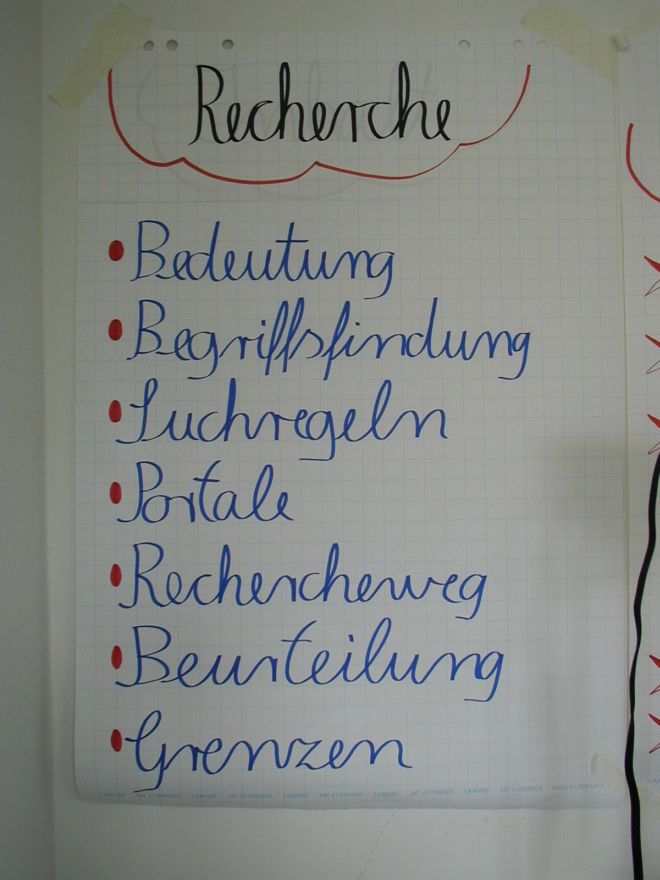 Recherche
Bedeutung
Begriffsfindung
Suchregeln
Portale
Rechercheweg
Beurteilung
Grenzen